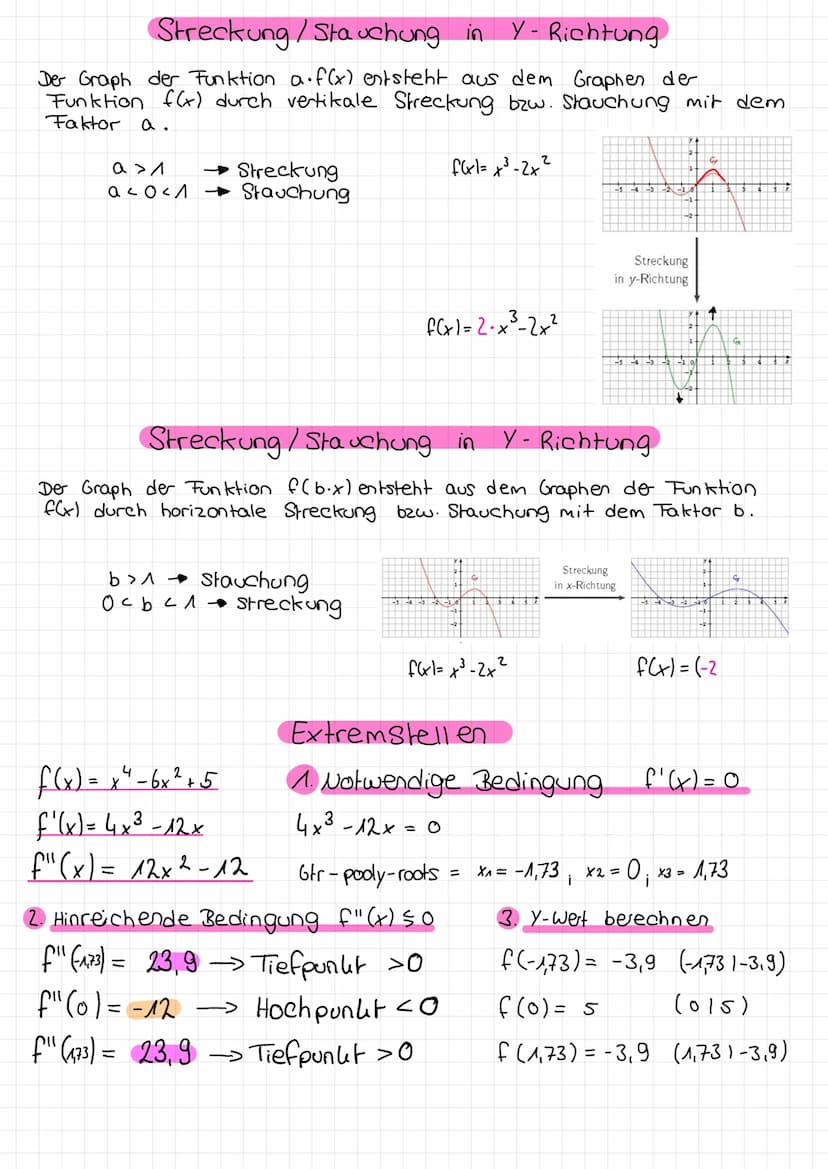 Streckung/Stauchung in Y-Richtung
Der Graph der Funktion a·f(x) entsteht aus dem Graphen der
Funktion f(x) durch vertikale Streckung bzw. Stauchung mit dem
Faktor a.
a > 1 → Streckung
a < 0 < 1 → Stauchung
f(x) = x³ - 2x²
Streckung
in y-Richtung
f(x) = 2·x³ - 2x²
Streckung/Stauchung in Y-Richtung
Der Graph der Funktion f(b·x) entsteht aus dem Graphen der Funktion
f(x) durch horizontale Streckung bzw. Stauchung mit dem Faktor b.
b > 1 → Stauchung
0 < b < 1 → Streckung
Streckung
in x-Richtung
f(x) = x³ - 2x²
f(x) = (-2
Extremstellen
f(x) = x⁴ - 6x² + 5
1. Notwendige Bedingung f'(x) = 0
f'(x) = 4x³ - 12x
4x³ - 12x = 0
f''(x) = 12x² - 12
Gtr-pooly-roots = x1 = -1,73 ; x2 = 0 ; x3 = 1,73
2. Hinreichende Bedingung f''(x) ≶ 0
3. Y-Wert berechnen
f''(-1,73) = 23,9 → Tiefpunkt > 0
f(-1,73) = -3,9 (-1,73 | -3,9)
f''(0) = -12 → Hochpunkt < 0
f(0) = 5 (0 | 5)
f''(1,73) = 23,9 → Tiefpunkt > 0
f(1,73) = -3,9 (1,73 | -3,9)